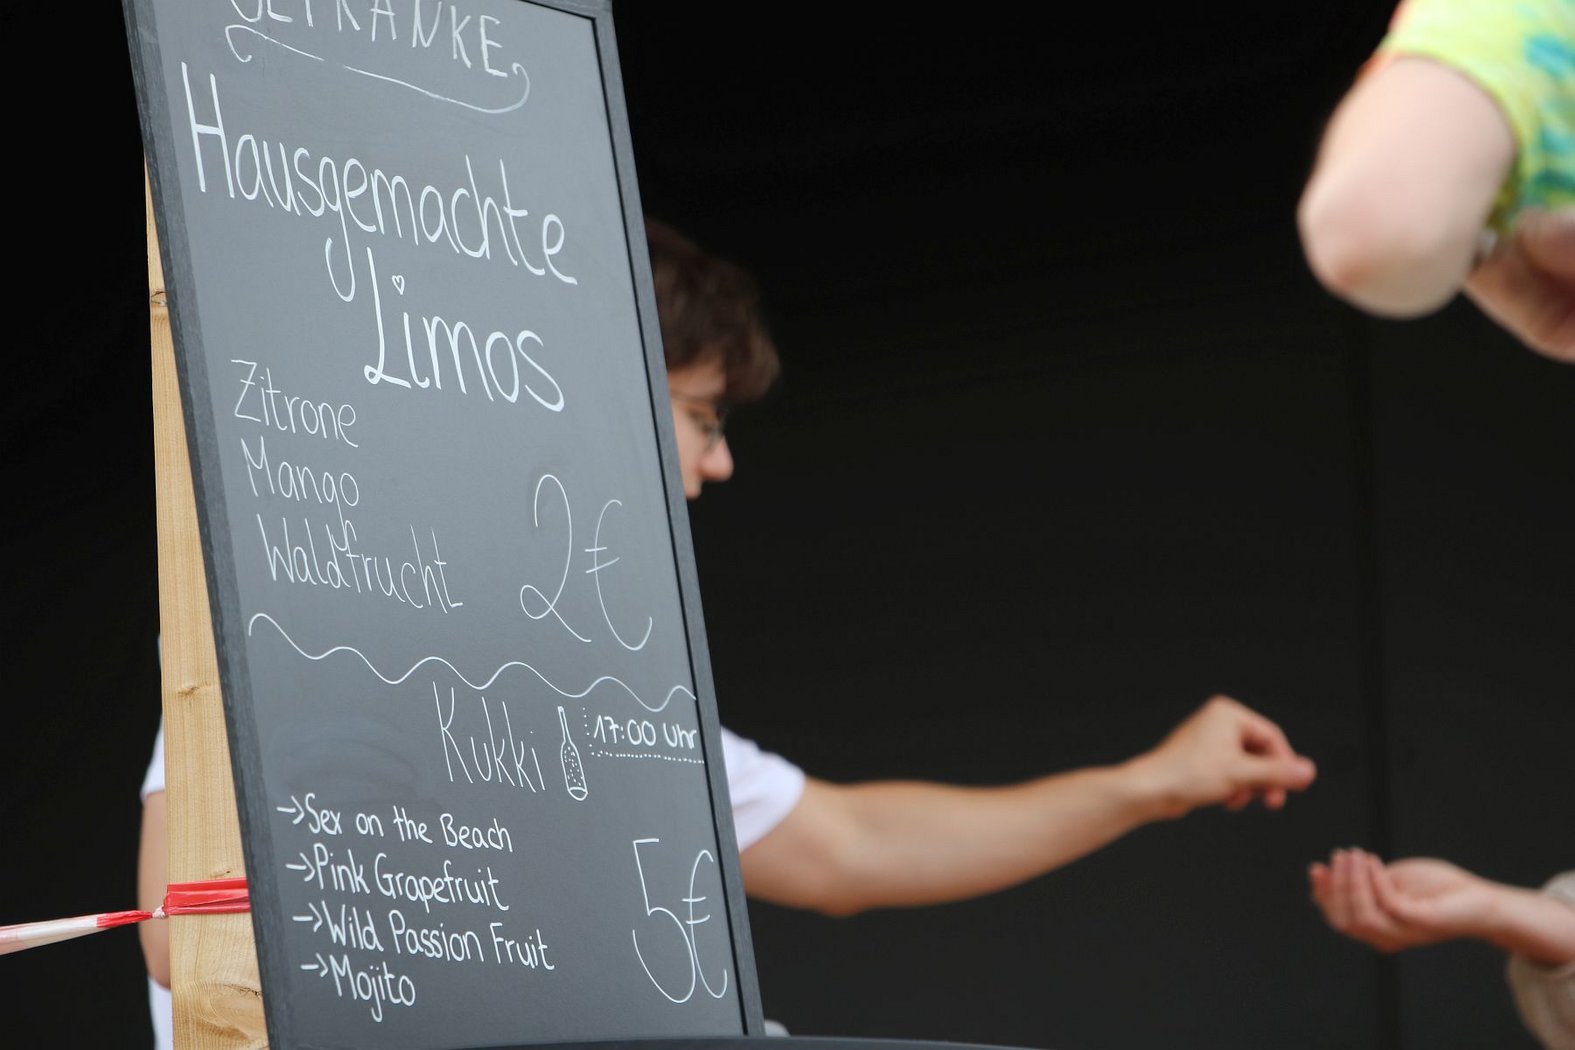 GETRÄNKE
Hausgemachte
Limos
Zitrone
Mango
Waldfrucht
2€
Kukki 17:00 Uhr
→Sex on the Beach
→Pink Grapefruit
→Wild Passion Fruit
→Mojito
5€